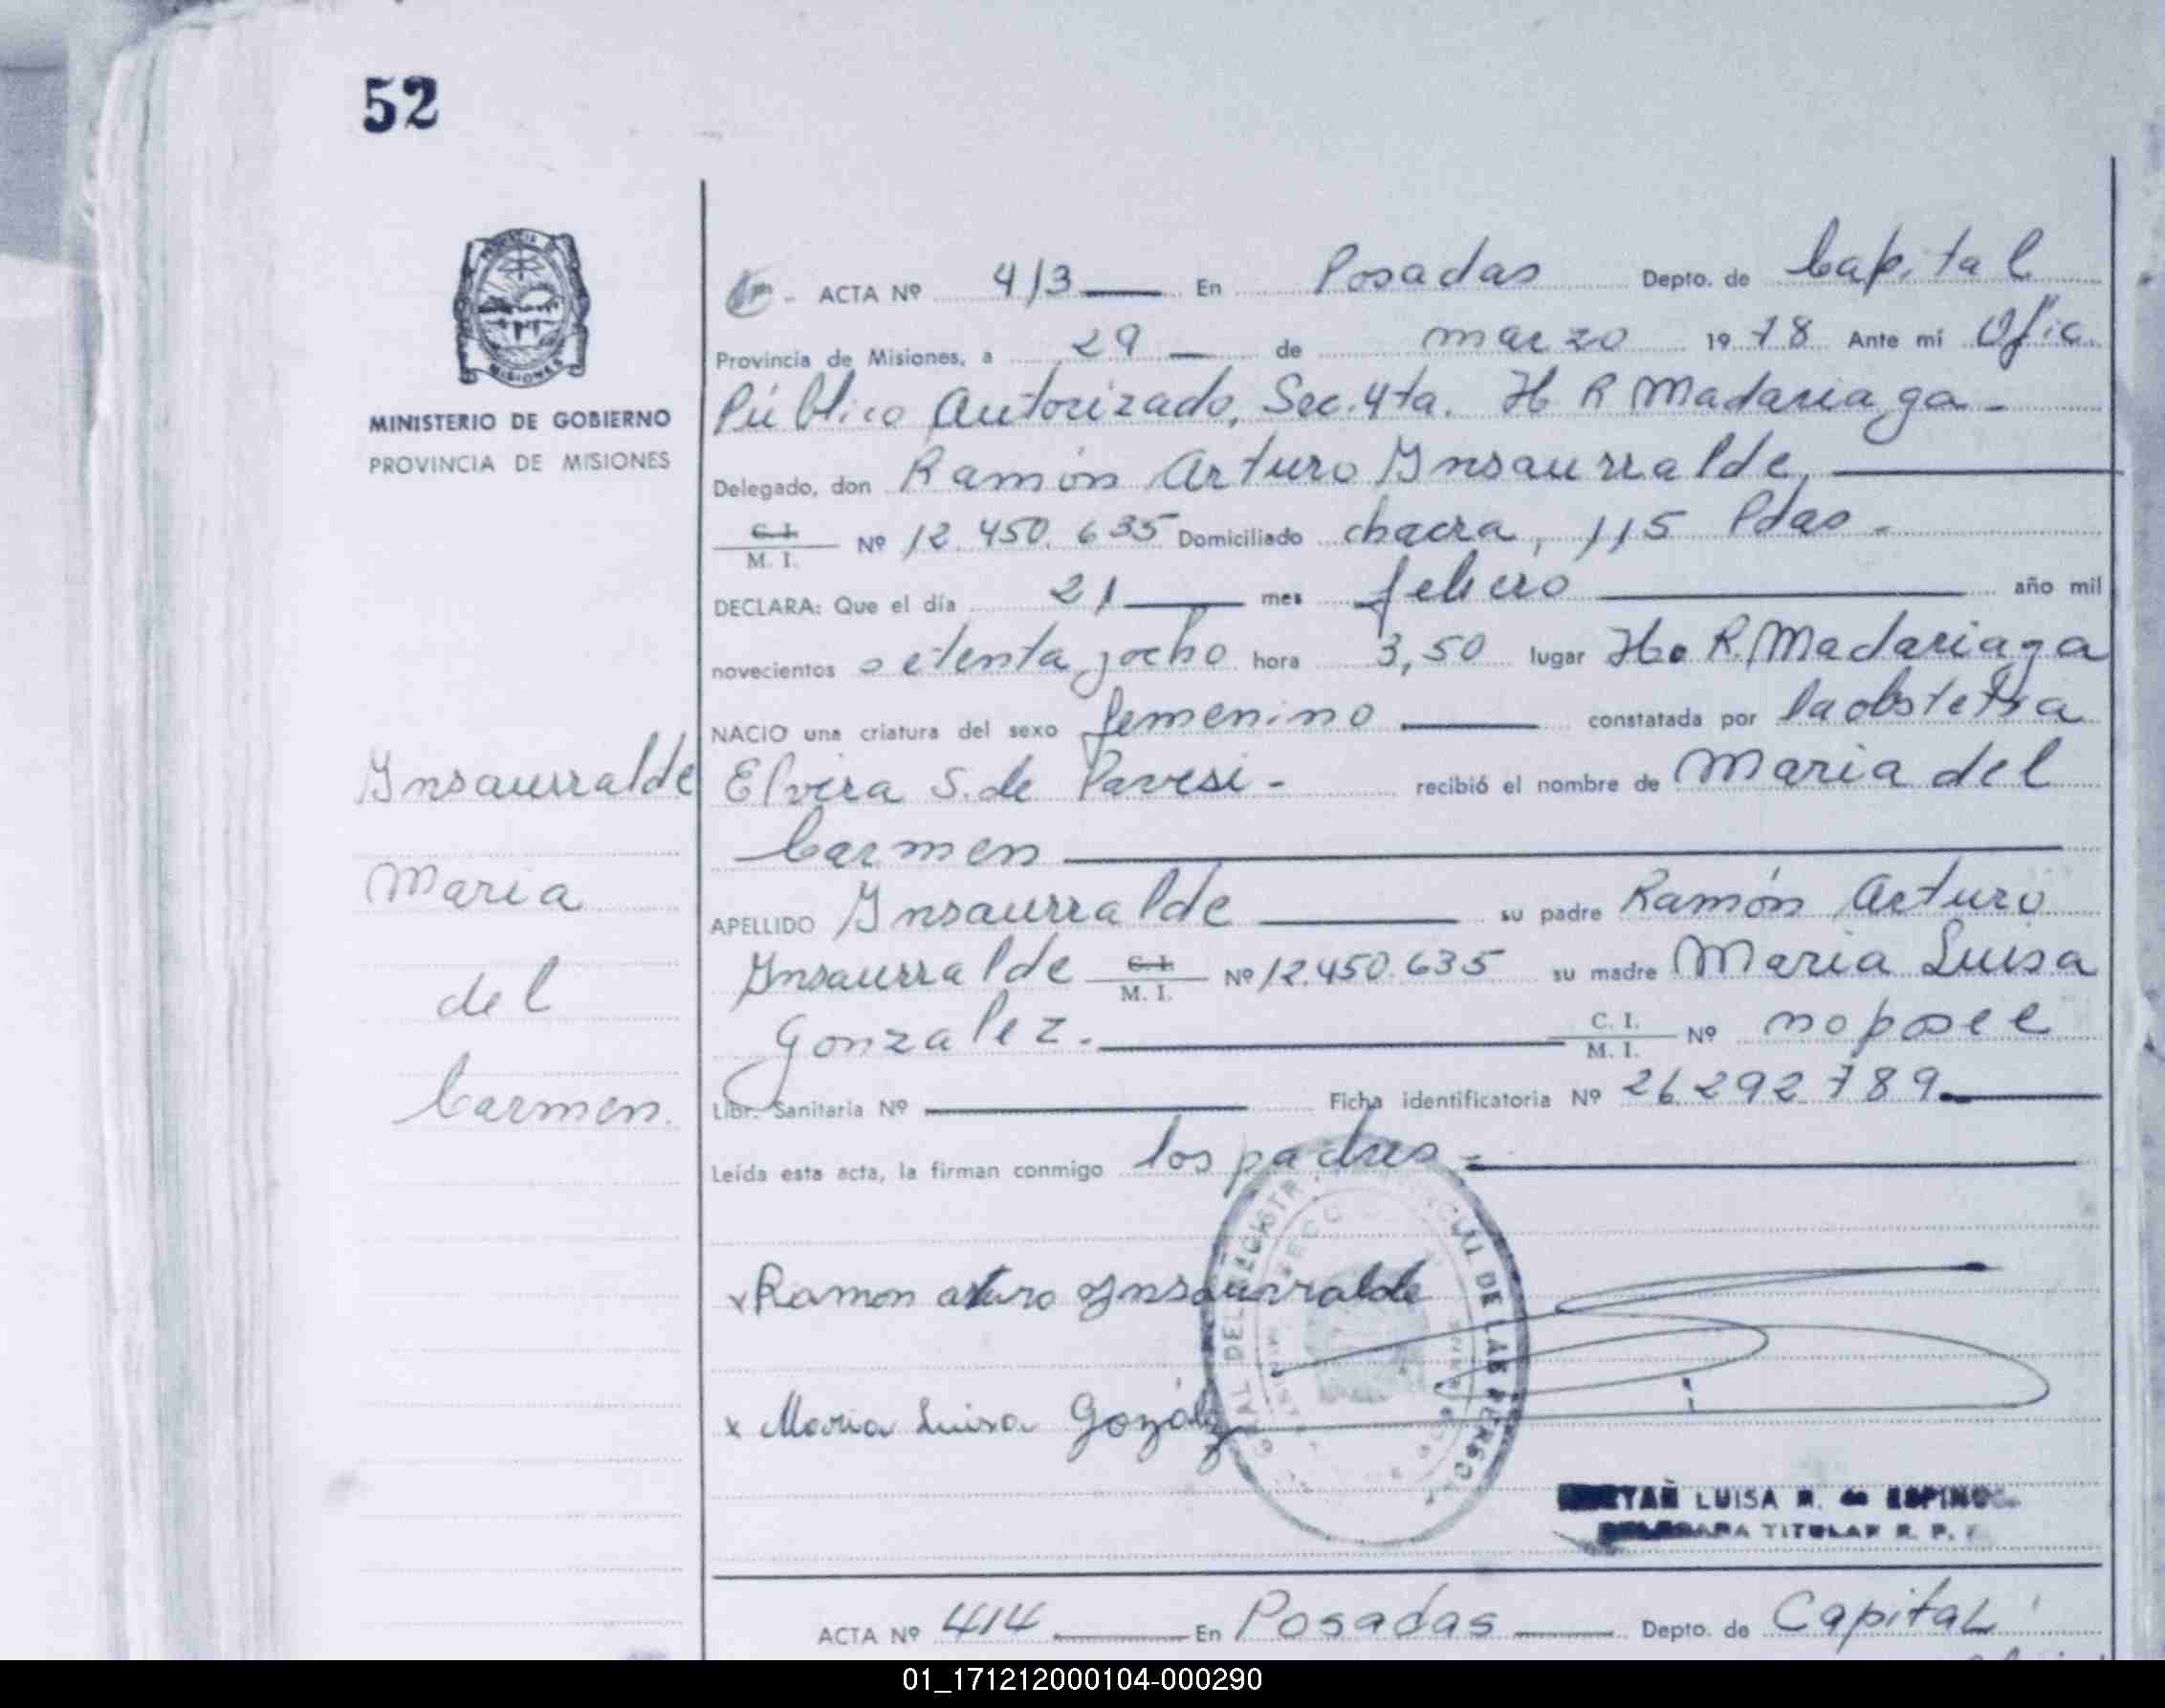 52
MINISTERIO DE GOBIERNO
PROVINCIA DE MISIONES
ACTA Nº 413 En Posadas Depto. de Capital
Provincia de Misiones, a 29 de marzo 1978 Ante mí Ofic.
Público Autorizado, Sec. 4ta. H R Madariaga -
Delegado, don Ramón Arturo Insaurralde,
C. I. / M. I. Nº 12.450.635 Domiciliado chacra, 115 Pdas -
DECLARA: Que el día 21 mes febrero año mil
novecientos setenta y ocho hora 3,50 lugar Ho R. Madariaga
NACIO una criatura del sexo femenino constatada por la obstetra
Elvira S. de Pavesi - recibió el nombre de Maria del
Carmen
APELLIDO Insaurralde su padre Ramón Arturo
Insaurralde C. I. / M. I. Nº 12.450.635 su madre Maria Luisa
Gonzalez. C. I. / M. I. Nº no posee
Libr. Sanitaria Nº Ficha identificatoria Nº 26292789
Leída esta acta, la firman conmigo los padres =
Insaurralde
Maria
del
Carmen.
x Ramon arturo Insaurralde
x Maria Luisa Gozález
DEL REGISTR DE LAS PERSO
LUISA M. de ESPINO
TITULAR R. P.
ACTA Nº 414 En Posadas Depto. de Capital
01_171212000104-000290